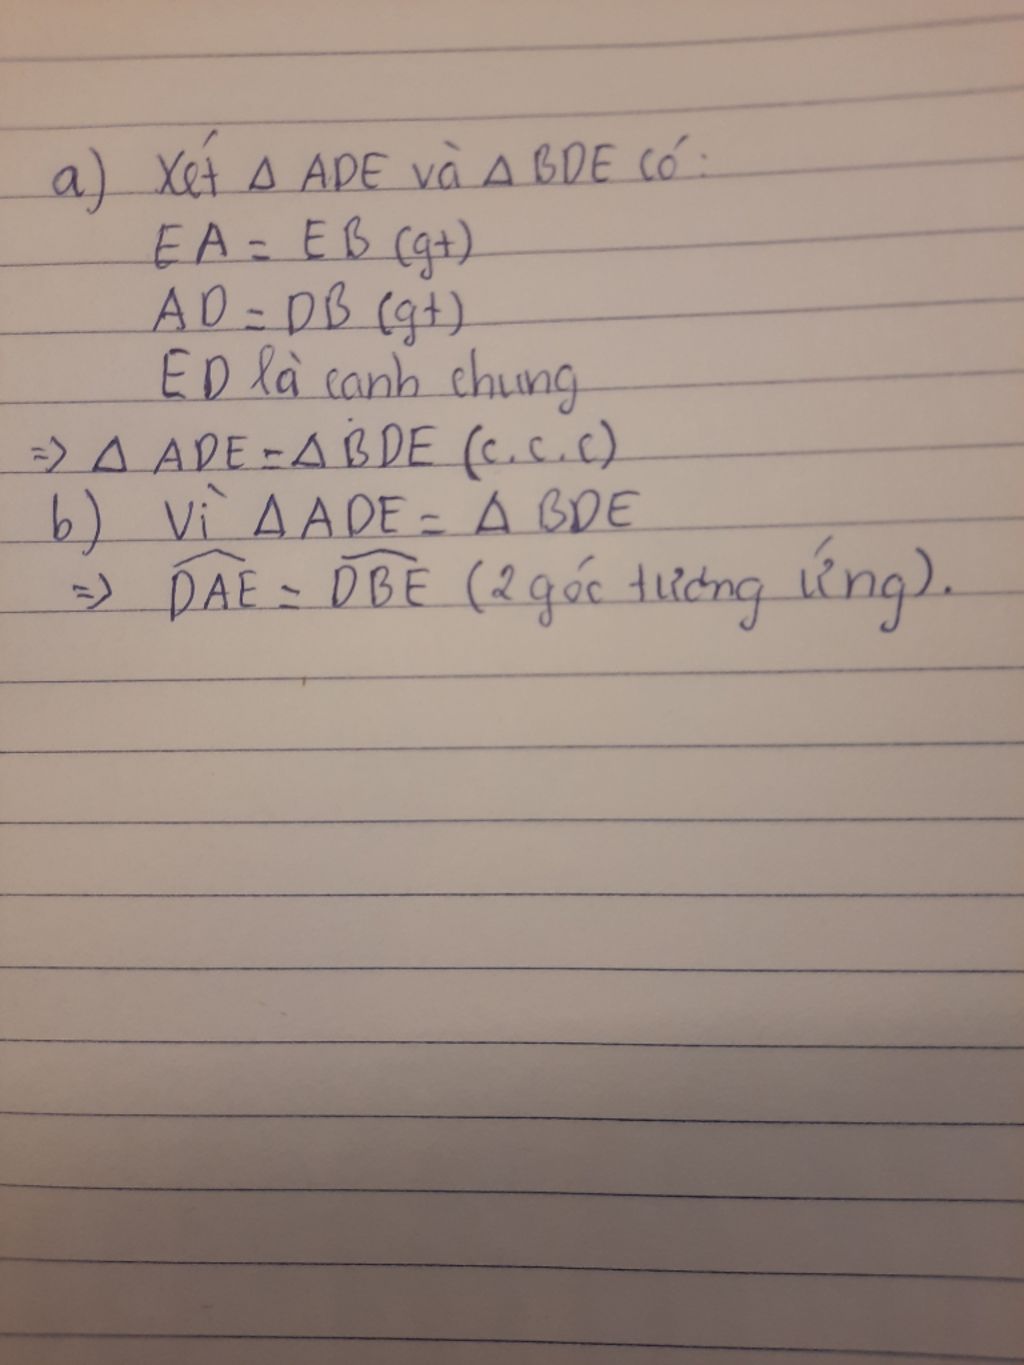 a) Xét Δ ADE và Δ BDE có:
EA = EB (gt)
AD = DB (gt)
ED là cạnh chung
=> Δ ADE = Δ BDE (c.c.c)
b) Vì Δ ADE = Δ BDE
=> \widehat{DAE} = \widehat{DBE} (2 góc tương ứng).